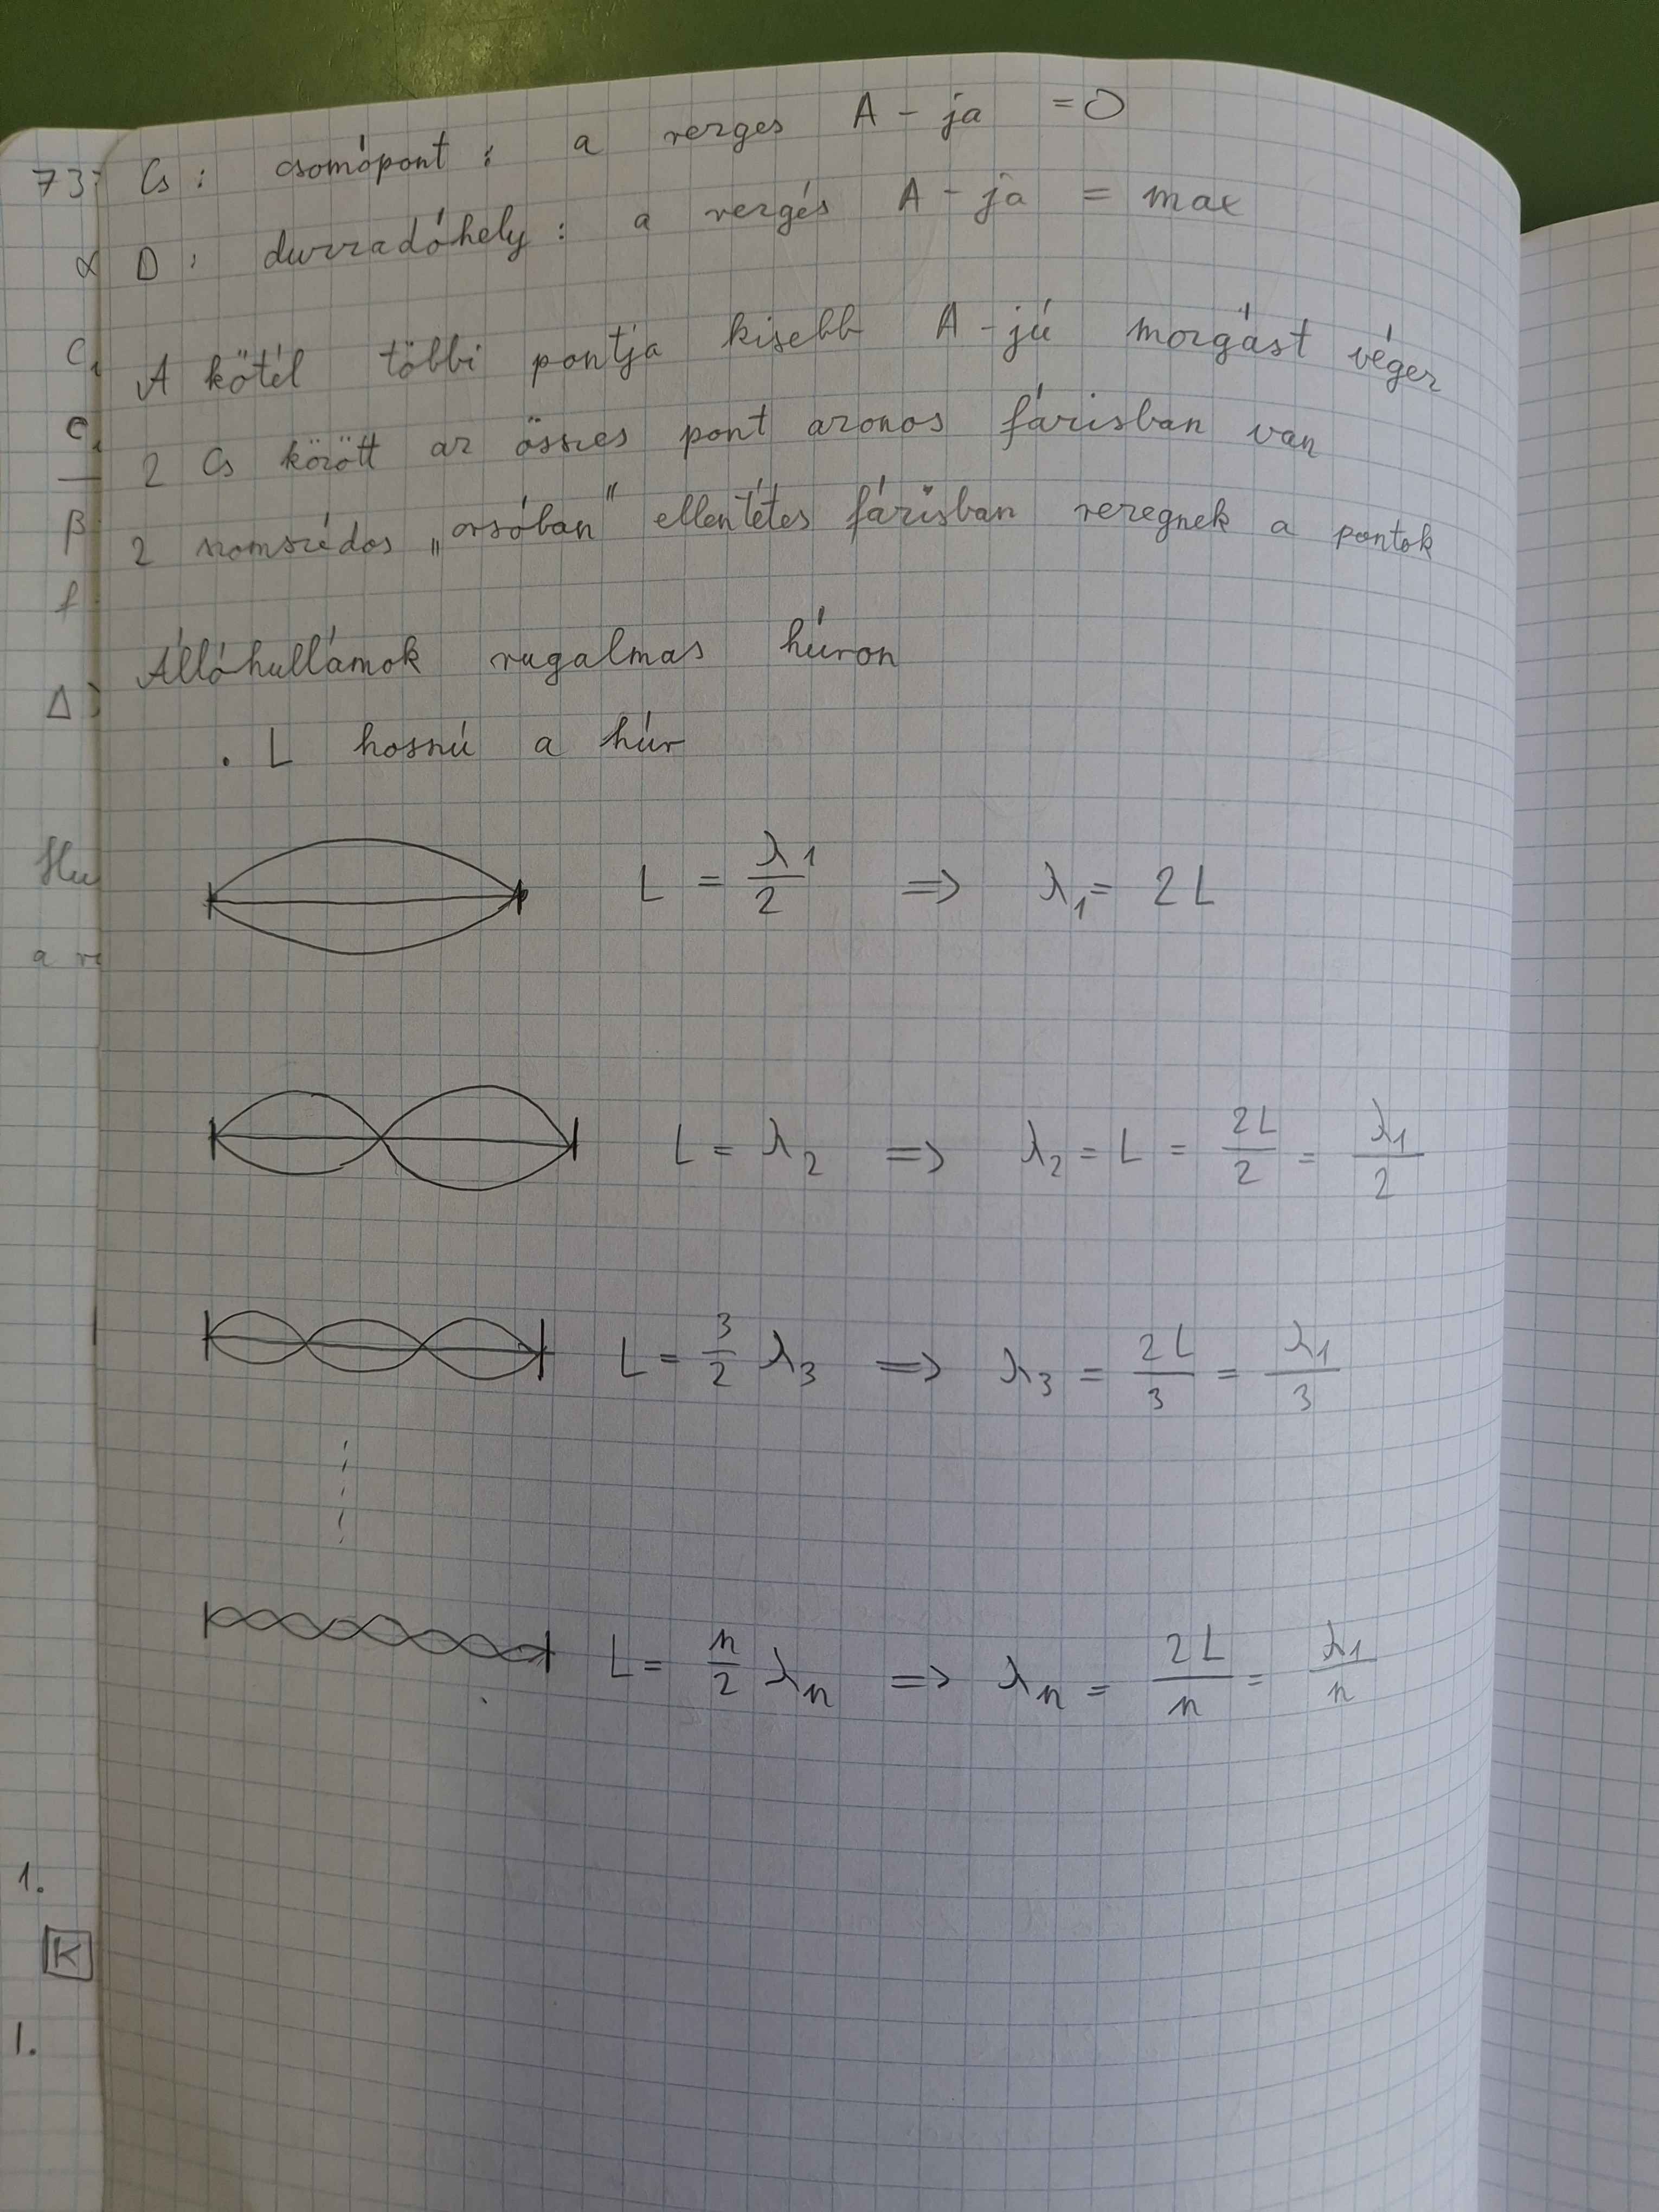 Cs: csomópont: a rezges A-ja = 0
D: duzzadóhely: a rezgés A-ja = max
A kötél többi pontja kisebb A-jú mozgást végez
2 Cs között az összes pont azonos fázisban van
2 szomszédos „orsóban" ellentétes fázisban rezegnek a pontok
Állóhullámok rugalmas húron
. L hosszú a húr
L = λ1/2 => λ1 = 2L
L = λ2 => λ2 = L = 2L/2 = λ1/2
L = 3/2 λ3 => λ3 = 2L/3 = λ1/3
L = n/2 λn => λn = 2L/n = λ1/n
73
α
β
Δ
1.
K
1.